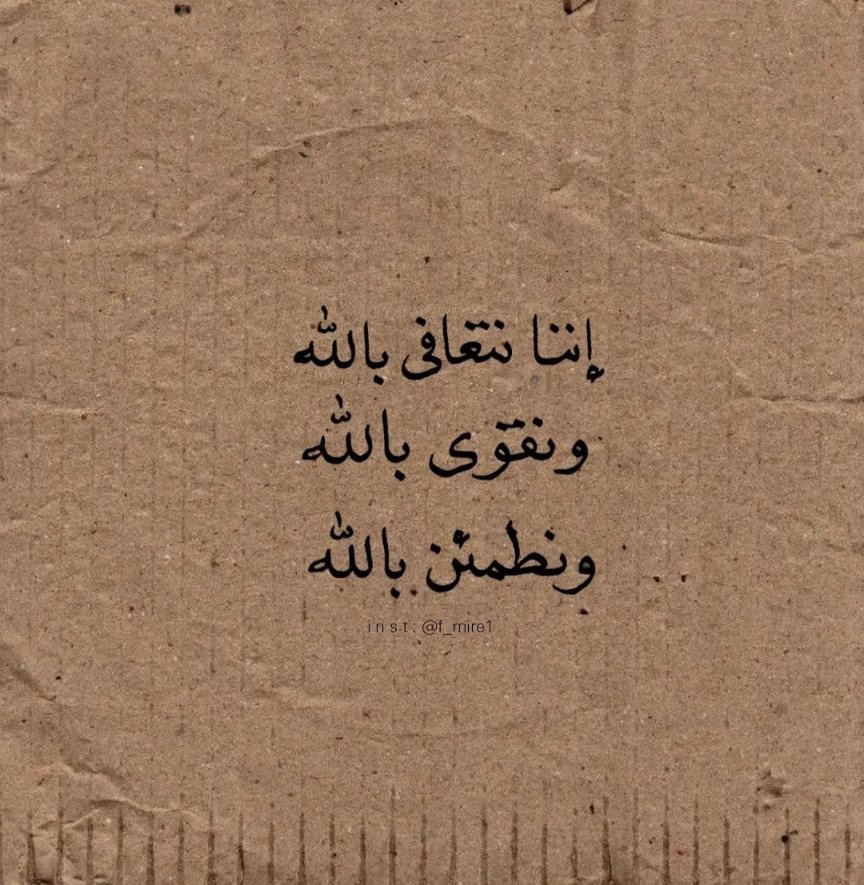 إننا نتعافى بالله
ونقوى بالله
ونطمئن بالله
inst: @f_mire1